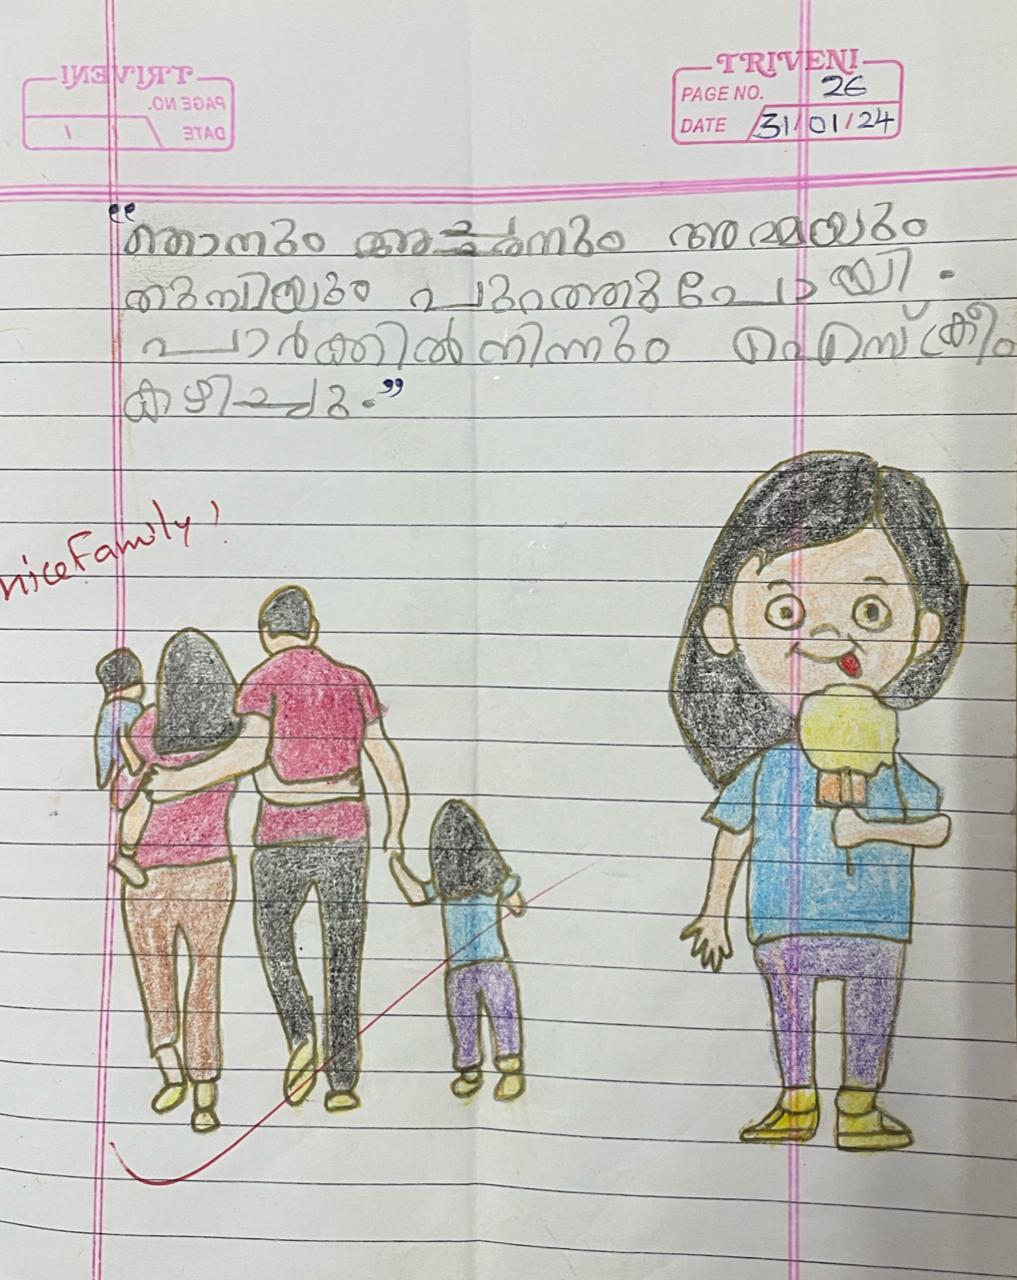 TRIVENI
PAGE NO. 26
DATE 31/01/24
TRIVENI
PAGE NO.
DATE / /
“ഞാനും അച്ഛനും അമ്മയും
കുനിയും പുറത്തുപോയി.
പാർക്കിൽനിന്നും ഐസ്ക്രീം
കഴിച്ചു.”
nice Family!